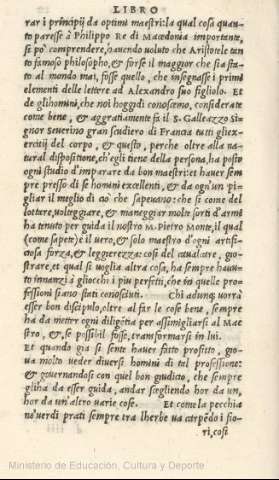 LIBRO
rar i principij da optimi maestri: la qual cosa quan-
to paresse à Philippo Re di Macedonia importante,
si po comprendere, hauendo uoluto che Aristotele tan
to famoso philosopho, & forse il maggior che sia sta-
to al mondo mai, fosse quello, che insegnasse i primi
elementi delle lettere ad Alexandro suo figliolo. Et
de gli homini, che noi hoggidi conoscemo, considerate
come bene, & aggratiatamente fa il S. Galleazzo Si-
gnor Seuerino gran scudiero di Francia tutti gli ex-
ercitij del corpo, & questo, perche oltre alla na-
tural dispositione, ch'egli tiene della persona, ha posto
ogni studio d'imparare da bon maestri: et hauer sem
pre presso di se homini excellenti, & da ogn'un pi-
gliar il meglio di ciò che sapeuano: che si come del
lottare, uolteggiare, & maneggiar molte sorti d'armi
ha tenuto per guida il nostro M. Pietro Monte, il qual
(come sapete) è il uero, & solo maestro d'ogni artifi-
ciosa forza, & leggierezza: cosi del caualcare, gio-
strare, et qual si uoglia altra cosa, ha sempre hauu-
to innanzi à gliocchi i piu perfetti, che in quelle pro-
fessioni siano stati conosciuti. Chi adunq; uorrà
esser bon discipulo, oltre al far le cose bene, sempre
ha da metter ogni diligētia per assimigliarsi al Mae
stro, &, se possibil fosse, transformarsi in lui.
Et quando già si sente hauer fatto profitto, gio-
ua molto ueder diuersi homini di tal professione:
& gouernandosi con quel bon giudicio, che sempre
gli ha da esser guida, andar scegliendo hor da un,
hor da un'altro uarie cose. Et come la pecchia
ne'uerdi prati sempre tra lherbe ua carpēdo i fio-
ri, cosi
Ministerio de Educación, Cultura y Deporte